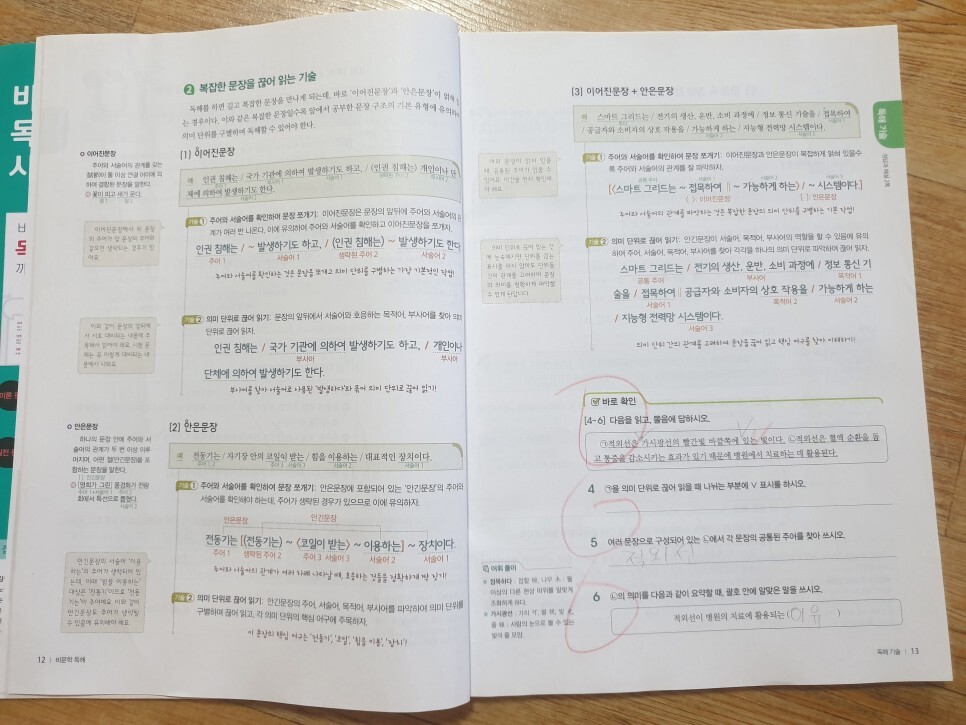 바
독
시
❷ 복잡한 문장을 끊어 읽는 기술
독해를 하면 길고 복잡한 문장을 만나게 되는데, 바로 '이어진문장'과 '안은문장'이
는 경우이다. 이와 같은 복잡한 문장일수록 앞에서 공부한 문장 구조의 기본 유형에 유의하
의미 단위를 구별하며 독해할 수 있어야 한다.
이어진문장
주어와 서술어의 관계를 갖는
절(節)이 둘 이상 연결 어미에 의
하여 결합된 문장을 말한다.
꽃이 피고 새가 운다.
[1] 이어진문장
예 인권 침해는 / 국가 기관에 의하여 발생하기도 하고, / (인권 침해는) 개인이나 단
체에 의하여 발생하기도 한다.
기술 1 주어와 서술어를 확인하여 문장 쪼개기: 이어진문장은 문장의 앞뒤에 주어와 서술어의 관
계가 여러 번 나온다. 이에 유의하여 주어와 서술어를 확인하고 이어진문장을 쪼갠다.
인권 침해는 / ~ 발생하기도 하고, / (인권 침해는) ~ 발생하기도 한다
주어 1 서술어 1 생략된 주어 2 서술어 2
주어와 서술어를 확인하는 것은 문장을 쪼개고 의미 단위를 구별하는 가장 기본적인 작업!
기술 2 의미 단위로 끊어 읽기: 문장의 앞뒤에서 서술어와 호응하는 목적어, 부사어를 찾아 의미
단위로 끊어 읽자.
인권 침해는 / 국가 기관에 의하여 발생하기도 하고, / 개인이나
부사어 부사어
단체에 의하여 발생하기도 한다.
부사어를 찾아 서술어로 사용된 '발생하다'와 묶어 의미 단위로 끊어 읽기!
안은문장
하나의 문장 안에 주어와 서
술어의 관계가 두 번 이상 이루
어지며, 어떤 절(안긴문장)을 포
함하는 문장을 말한다.
[영희가 그린] 풍경화가 전람
회에서 특선으로 뽑혔다.
[2] 안은문장
예 전동기는 / 자기장 안의 코일이 받는 / 힘을 이용하는 / 대표적인 장치이다.
기술 1 주어와 서술어를 확인하여 문장 쪼개기: 안은문장에 포함되어 있는 '안긴문장'의 주어와
서술어를 확인해야 하는데, 주어가 생략된 경우가 있으므로 이에 유의하자.
안은문장 안긴문장
전동기는 [(전동기는) ~ <코일이 받는> ~ 이용하는] ~ 장치이다.
주어 1 생략된 주어 2 주어 3 서술어 3 서술어 2 서술어 1
주어와 서술어의 관계가 여러 차례 나타날 때, 호응하는 것들을 정확하게 짝 짓기!
기술 2 의미 단위로 끊어 읽기: 안긴문장의 주어, 서술어, 목적어, 부사어를 파악하여 의미 단위를
구별하며 끊어 읽고, 각 의미 단위의 핵심 어구에 주목하자.
이 문장의 핵심 어구는 '전동기', '코일', '힘을 이용', '장치'!
12 | 비문학 독해
[3] 이어진문장 + 안은문장
예 스마트 그리드는 / 전기의 생산, 운반, 소비 과정에 / 정보 통신 기술을 / 접목하여
/ 공급자와 소비자의 상호 작용을 / 가능하게 하는 / 지능형 전력망 시스템이다.
독해 기술
기술 1 주어와 서술어를 확인하여 문장 쪼개기: 이어진문장과 안은문장이 복잡하게 얽혀 있을수
록 주어와 서술어의 관계를 잘 파악하자.
[<스마트 그리드는 ~ 접목하여 ‖ ~ 가능하게 하는> / ~ 시스템이다]
< > 이어진문장 [ ] 안은문장
주어와 서술어의 관계를 파악하는 것은 복잡한 문장의 의미 단위를 구별하는 기본 작업!
기술 2 의미 단위로 끊어 읽기: 안긴문장이 서술어, 목적어, 부사어의 역할을 할 수 있음에 유의
하여 주어, 서술어, 목적어, 부사어를 찾아 각각을 하나의 의미 단위로 파악하여 끊어 읽자.
스마트 그리드는 / 전기의 생산, 운반, 소비 과정에 / 정보 통신 기
공통 주어 부사어 목적어 1
술을 / 접목하여 ‖ 공급자와 소비자의 상호 작용을 / 가능하게 하는
서술어 1 목적어 2 서술어 2
/ 지능형 전력망 시스템이다.
서술어 3
의미 단위 간의 관계를 고려하며 문장을 끊어 읽고 핵심 어구를 찾아 이해하기!
바로 확인
[4~6] 다음을 읽고, 물음에 답하시오.
㉠적외선은 가시광선의 빨간빛 바깥쪽에 있는 빛이다. ㉡적외선은 혈액 순환을 돕
고 통증을 감소시키는 효과가 있기 때문에 병원에서 치료하는 데 활용된다.
4 ㉠을 의미 단위로 끊어 읽을 때 나뉘는 부분에 ∨ 표시를 하시오.
5 여러 문장으로 구성되어 있는 ㉡에서 각 문장의 공통된 주어를 찾아 쓰시오.
적외선
6 ㉡의 의미를 다음과 같이 요약할 때, 괄호 안에 알맞은 말을 쓰시오.
적외선이 병원의 치료에 활용되는 ( 이유 )
어휘 풀이
접목하다
가시광선
독해 기술 | 13